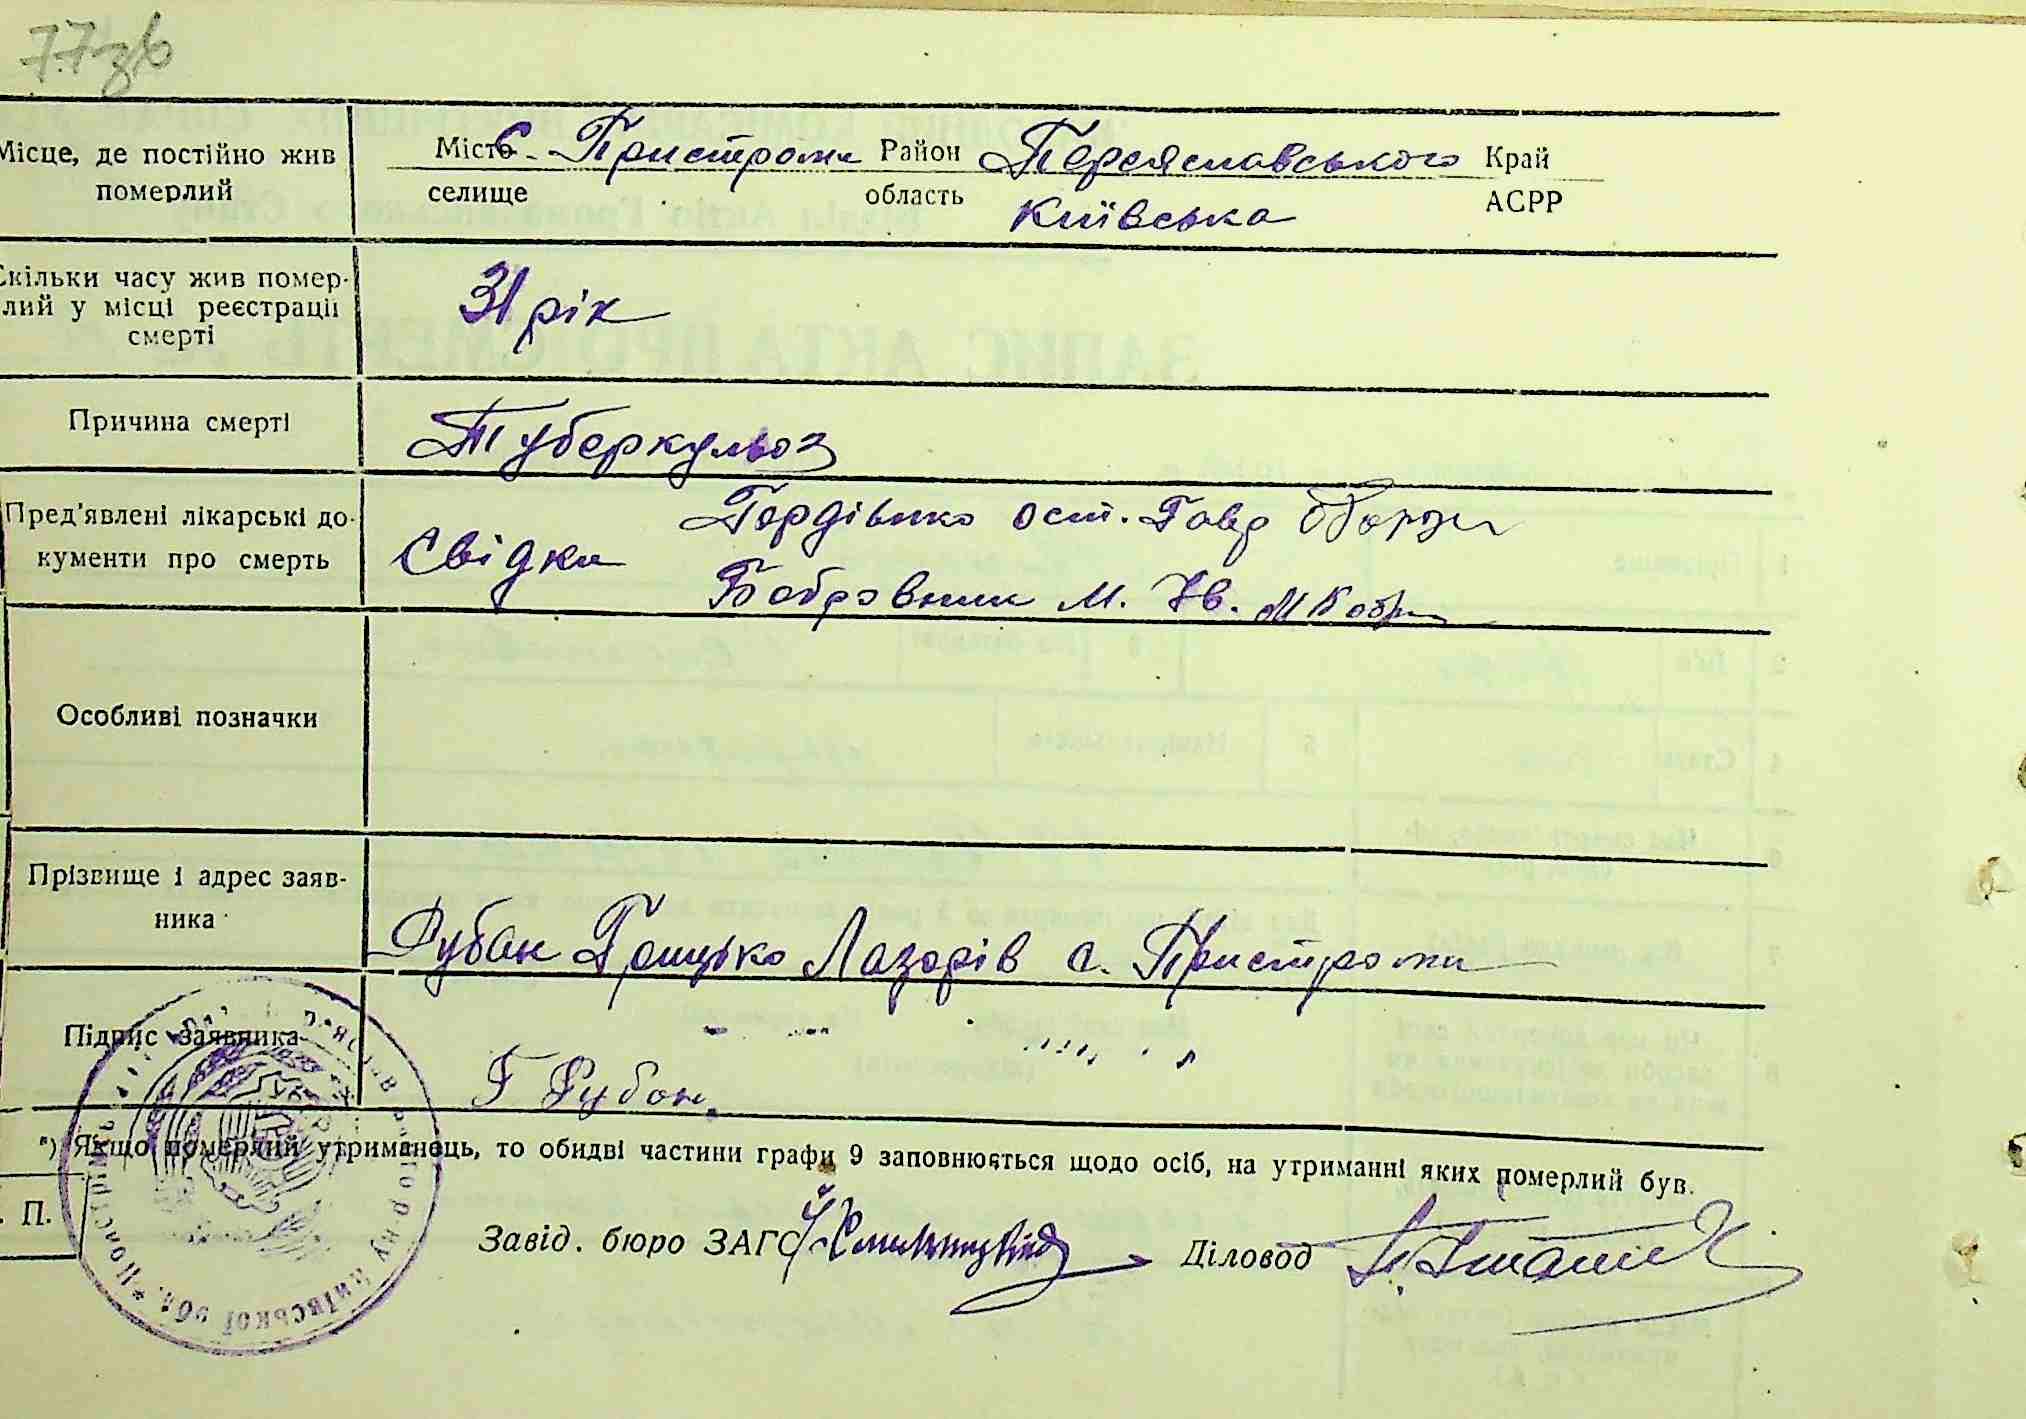 77зв
Місце, де постійно жив
померлий
Місто с. Пристроми Район Переяславського Край
селище область Київська АСРР
Скільки часу жив помер-
лий у місці реєстрації
смерті
31 рік
Причина смерті
Туберкульоз
Пред'явлені лікарські до-
кументи про смерть
Свідки
Гордієнко ост. Гавр
Бобровник М. Ів.
Особливі позначки
Прізвище і адрес заяв-
ника
Рубан Грицько Лазорів с. Пристроми
Підпис заявника
Г Рубан.
*) Якщо померлий утриманець, то обидві частини графи 9 заповнюється щодо осіб, на утриманні яких померлий був.
. П.
Завід. бюро ЗАГС Діловод
Київської обл.